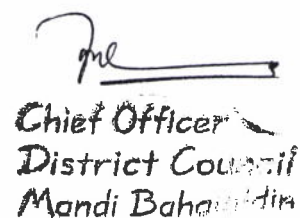 Chief Officer
District Council
Mandi Bahauddin